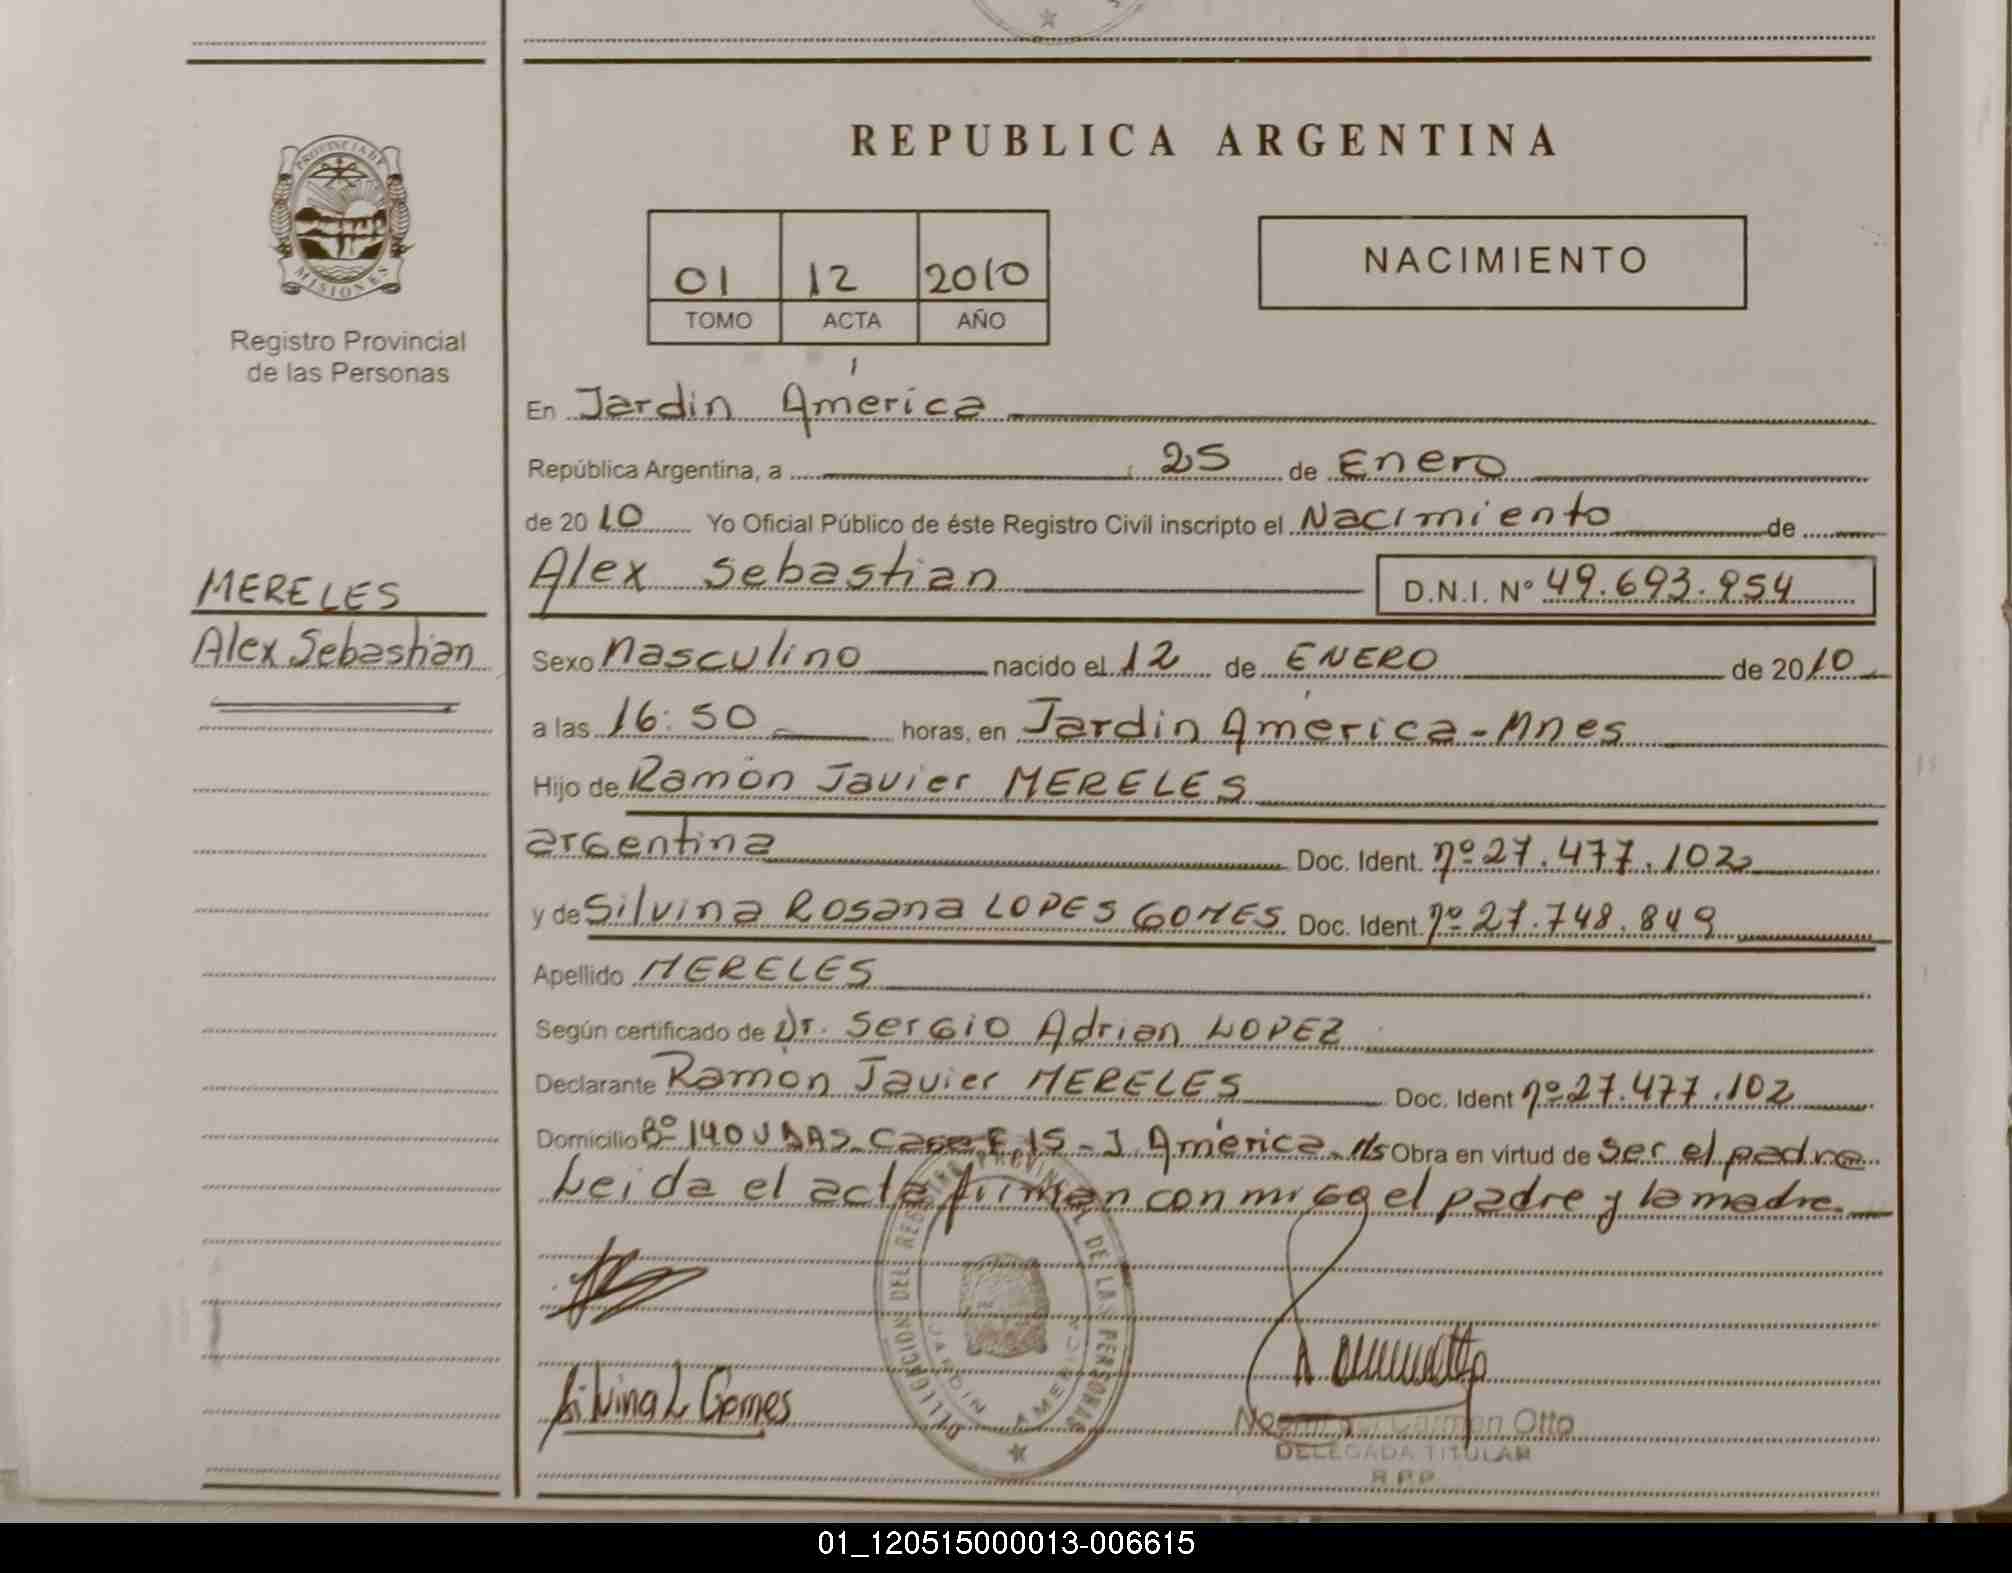 REPUBLICA ARGENTINA
PROVINCIA DE
MISIONES
Registro Provincial
de las Personas
01 12 2010
TOMO ACTA AÑO
NACIMIENTO
En Jardín América
República Argentina, a 25 de Enero
de 2010 Yo Oficial Público de éste Registro Civil inscripto el Nacimiento de
MERELES
Alex Sebastian
Alex Sebastian D.N.I. Nº 49.693.954
Sexo Masculino nacido el 12 de ENERO de 2010
a las 16:50 horas, en Jardin América - Mnes
Hijo de Ramón Javier MERELES
argentina Doc. Ident. nº 27.477.102
y de Silvina Rosana LOPES GOMES Doc. Ident. nº 27.748.849
Apellido MERELES
Según certificado de Dr. Sergio Adrian LOPEZ
Declarante Ramón Javier MERELES Doc. Ident nº 27.477.102
Domicilio Bº 140 Casa 15 - J. América. Obra en virtud de ser el padre
Leida el acta firman conmigo el padre y la madre.
DELEGACION DEL REGISTRO PROVINCIAL DE LAS PERSONAS
JARDIN AMERICA
Silvina L Gomes
Noemi del Carmen Otto
DELEGADA TITULAR
R.P.P.
01_120515000013-006615